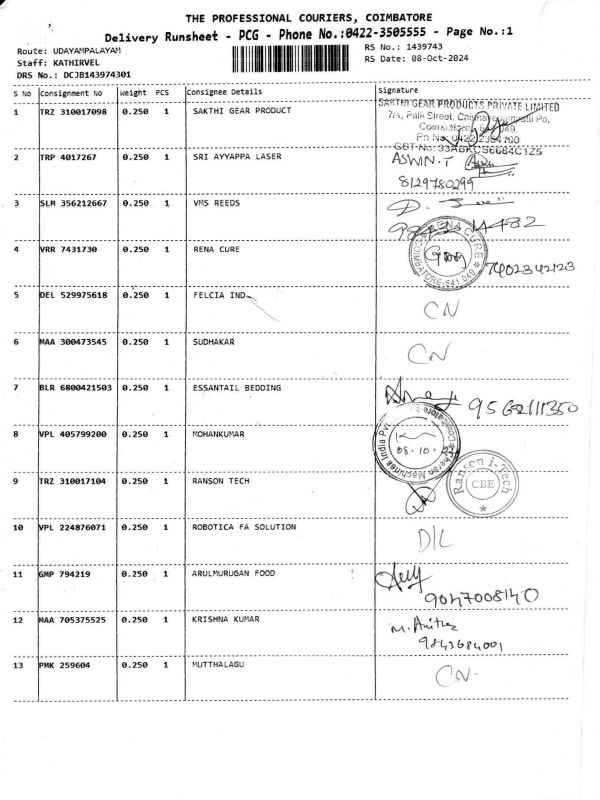 THE PROFESSIONAL COURIERS, COIMBATORE
Delivery Runsheet - PCG - Phone No.:0422-3505555 - Page No.:1
Route: UDAYAMPALAYAM
RS No.: 1439743
Staff: KATHIRVEL
RS Date: 08-Oct-2024
DRS No.: DCJB143974301
S No Consignment No Weight PCS Consignee Details Signature
1 TRZ 310017098 0.250 1 SAKTHI GEAR PRODUCT
SAKTHI GEAR PRODUCTS PRIVATE LIMITED
2 TRP 4017267 0.250 1 SRI AYYAPPA LASER ASWIN.T
8129780299
3 SLM 356212667 0.250 1 VMS REEDS
4 VRR 7431730 0.250 1 RENA CURE
RENA CURE
COIMBATORE-641 049
7402342123
5 DEL 529975618 0.250 1 FELCIA IND CN
6 MAA 300473545 0.250 1 SUDHAKAR CN
7 BLR 6800421503 0.250 1 ESSANTAIL BEDDING 9562111350
8 VPL 405799200 0.250 1 MOHANKUMAR
Machines India Pvt
08.10.
9 TRZ 310017104 0.250 1 RANSON TECH
Ranson i-Tech
CBE
10 VPL 224876071 0.250 1 ROBOTICA FA SOLUTION D/L
11 GMP 794219 0.250 1 ARULMURUGAN FOOD
9047008140
12 MAA 705375525 0.250 1 KRISHNA KUMAR M. Anitha
9843684001
13 PMK 259604 0.250 1 MUTTHALAGU CN-